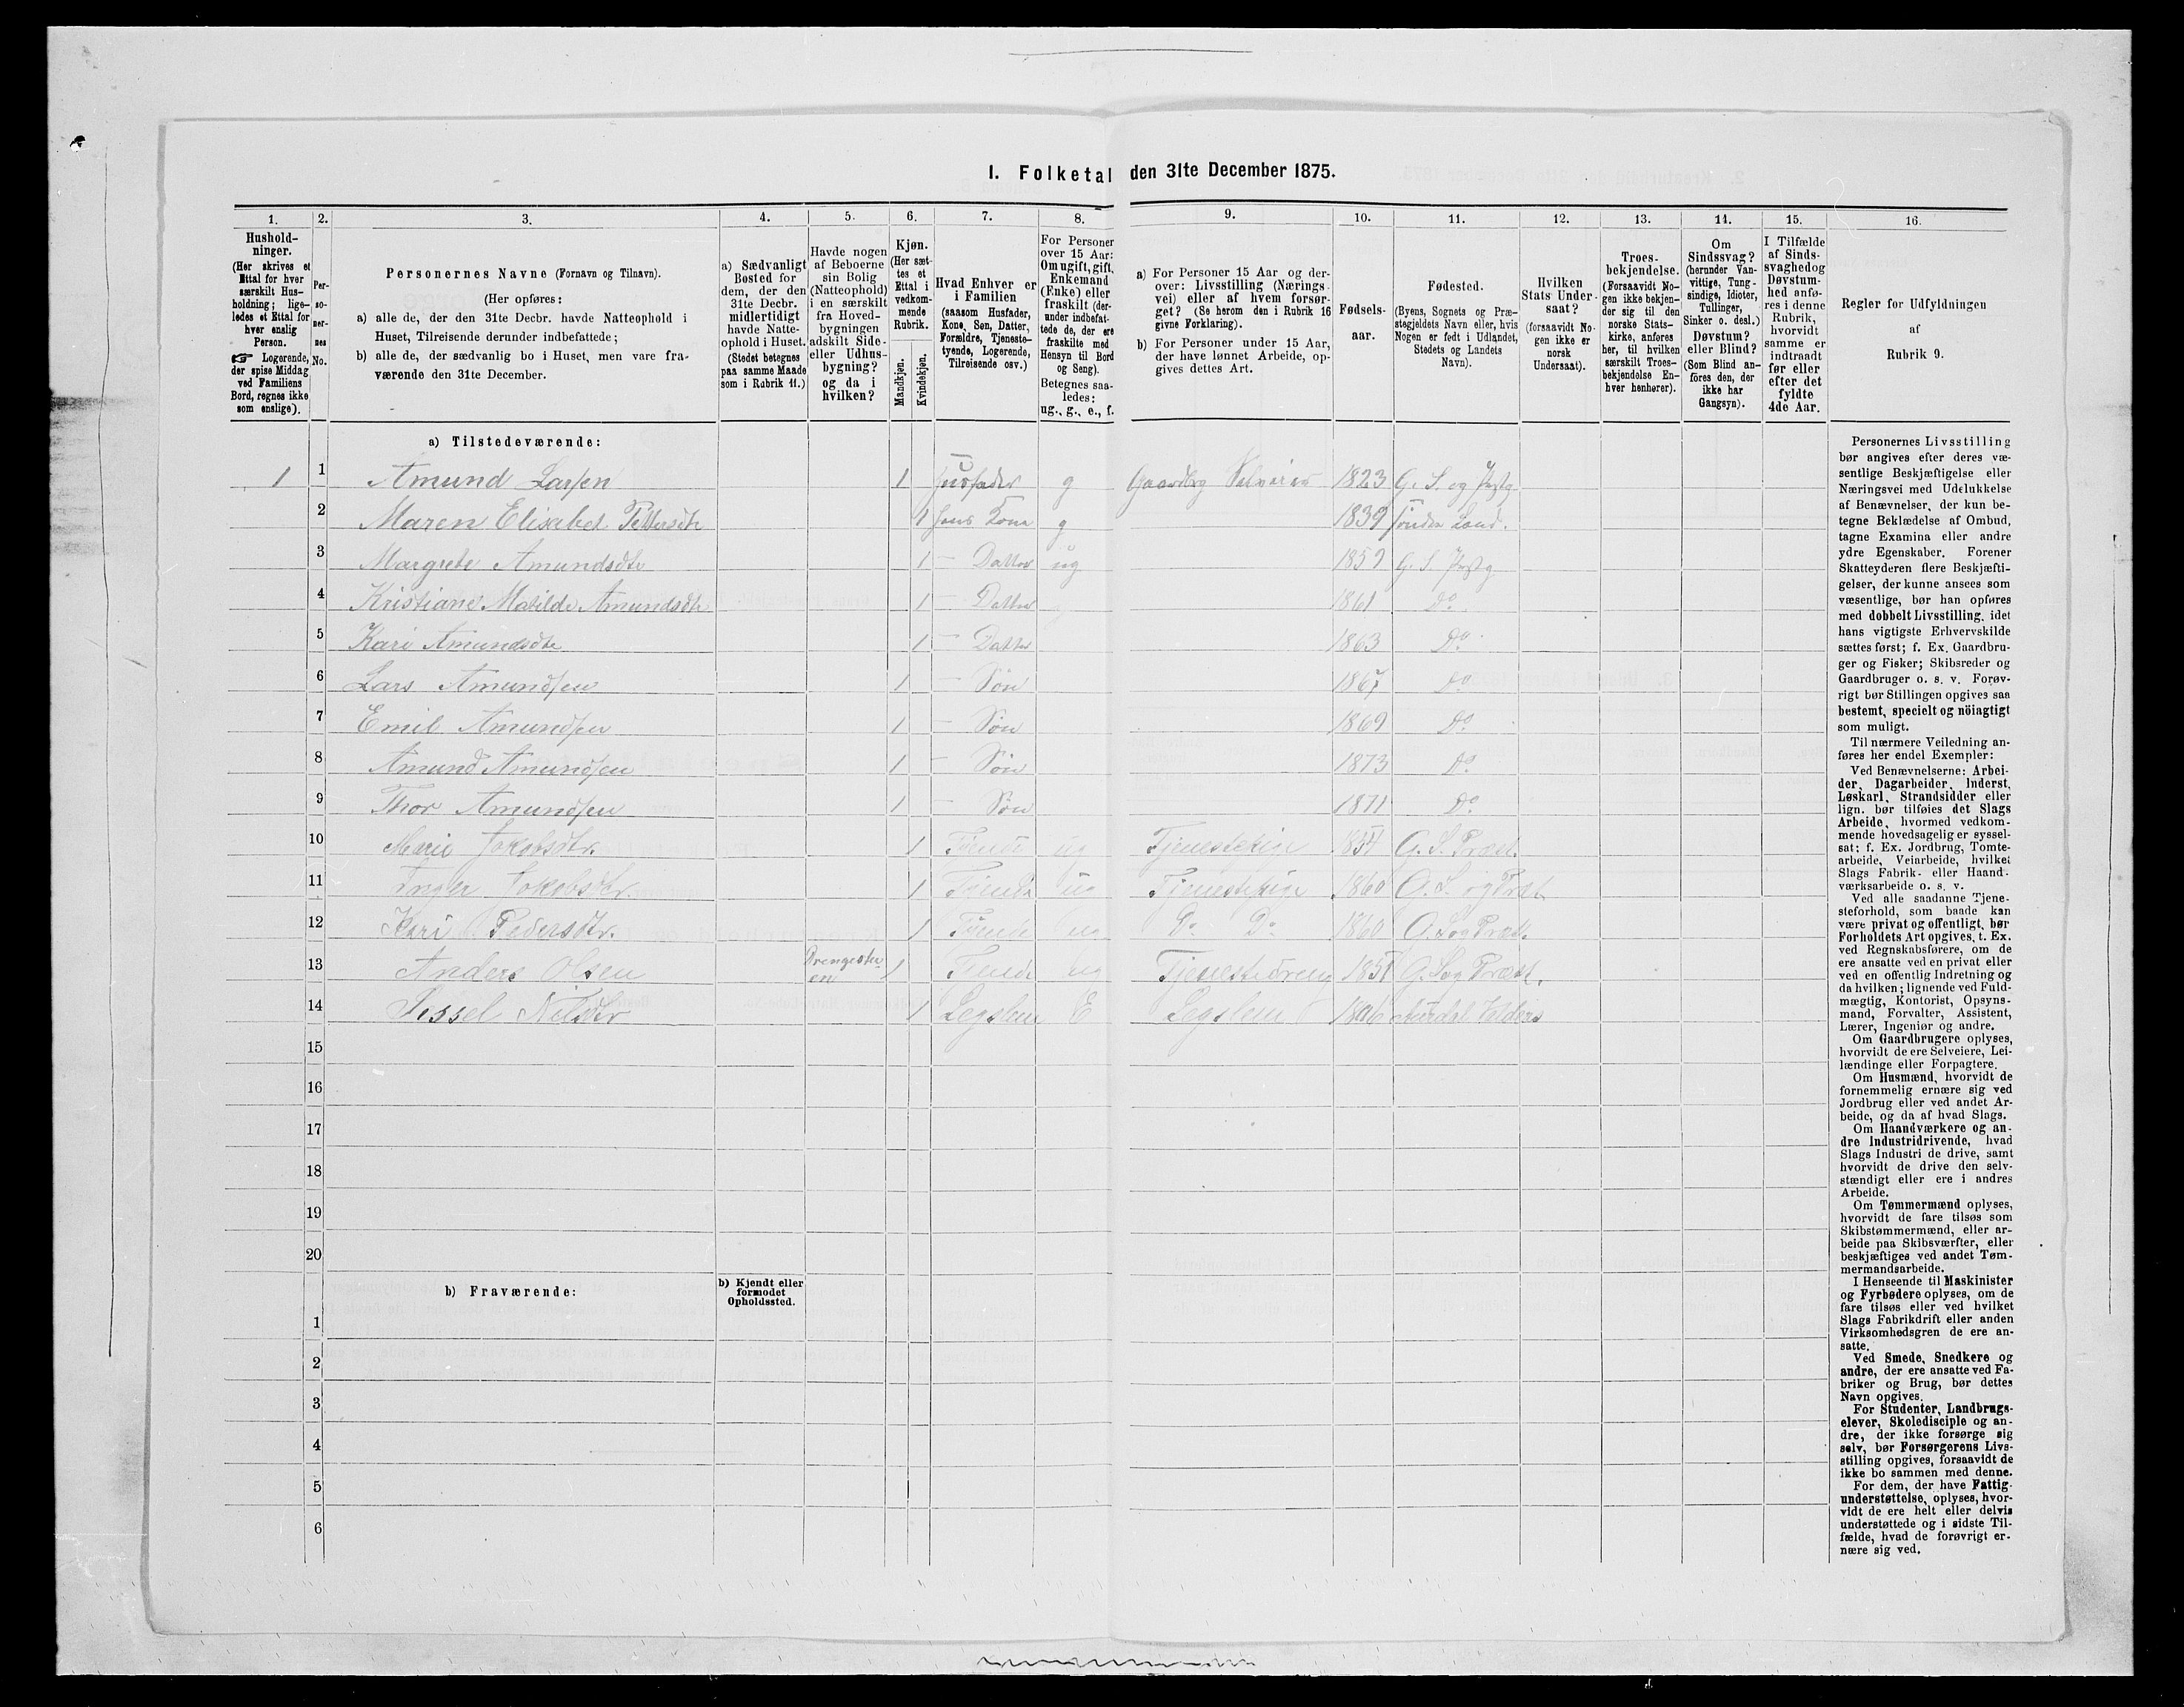 I. Folketal den 31te December 1875.
1. 2. 3. 4. 5. 6. 7. 8. 9. 10. 11. 12. 13. 14. 15. 16.
Hushold-
ninger.
(Her skrives et
Ettal for hver
særskilt Hus-
holdning; lige-
ledes et Ettal for
hver enslig
Person.
☞ Logerende,
der spise Middag
ved Familiens
Bord, regnes ikke
som enslige).
Per-
so-
ner-
nes
No.
Personernes Navne (Fornavn og Tilnavn).
(Her opføres:
a) alle de, der den 31te Decbr. havde Natteophold i
Huset, Tilreisende derunder indbefattede;
b) alle de, der sædvanlig bo i Huset, men vare fra-
værende den 31te December.
a) Sædvanligt
Bosted for
dem, der den
31te Decbr.
midlertidigt
havde Natte-
ophold i Huset.
(Stedet betegnes
paa samme Maade
som i Rubrik 11.)
Havde nogen
af Beboerne
sin Bolig
(Natteophold)
i en særskilt
fra Hoved-
bygningen
adskilt Side-
eller Udhus-
bygning?
og da i
hvilken?
Kjøn.
(Her sæt-
tes et
Ettal i
vedkom-
mende
Rubrik.
Mandkjøn.
Kvindekjøn.
Hvad Enhver er
i Familien
(saasom Husfader,
Kone, Søn, Datter,
Forældre, Tjeneste-
tyende, Logerende,
Tilreisende osv.)
For Personer
over 15 Aar:
Om ugift, gift,
Enkemand
(Enke) eller
fraskilt (der-
under indbefat-
tede de, der ere
fraskilte med
Hensyn til Bord
og Seng).
Betegnes saa-
ledes:
ug., g., e., f.
a) For Personer 15 Aar og der-
over: Livsstilling (Nærings-
vei) eller af hvem forsør-
get? (Se herom den i Rubrik 16
givne Forklaring).
b) For Personer under 15 Aar,
der have lønnet Arbeide, op-
gives dettes Art.
Fødsels-
aar.
Fødested.
(Byens, Sognets og Præ-
stegjeldets Navn eller, hvis
Nogen er født i Udlandet,
Stedets og Landets
Navn).
Hvilken
Stats Under-
saat?
(forsaavidt No-
gen ikke er
norsk
Undersaat).
Troes-
bekjendelse.
(Forsaavidt No-
gen ikke bekjen-
der sig til den
norske Stats-
kirke, anføres
her, til hvilken
særskilt Troes-
bekjendelse En-
hver henhører).
Om
Sindssvag?
(herunder Van-
vittige, Tung-
sindige, Idioter,
Tullinger,
Sinker o. desl.)
Døvstum?
eller Blind?
(Som Blind an-
föres den, der
ikke har
Gangsyn).
I Tilfælde
af Sinds-
svaghed og
Døvstum-
hed anfø-
res i denne
Rubrik,
hvorvidt
samme er
indtraadt
før eller
efter det
fyldte
4de Aar.
Regler for Udfyldningen
af
Rubrik 9.
a) Tilstedeværende:
1 1 Amund Larsen 1 Husfader g Gaardbrg Selveier 1823 G. S. og Prstg
2 Maren Elisabet Pettersdtr 1 hans Kone g 1839 Søndre Land.
3 Margrete Amundsdtr 1 — Datter ug 1859 G. S. Prstg
4 Kristiane Matilde Amundsdtr 1 — Datter 1861 Do
5 Kari Amundsdtr 1 — Datter 1863 Do
6 Lars Amundsen 1 — Søn 1867 Do
7 Emil Amundsen 1 — Søn 1869 Do
8 Amund Amundsen 1 — Søn 1873 Do
9 Thor Amundsen 1 — Søn 1871 Do
10 Marie Jakobsdtr. 1 Tjende ug Tjenestepige G. S. Præst.
11 Inger Jakobsdtr. 1 Tjende ug Tjenestepige 1860 G. S. og Præst
12 Kari Pedersdtr. 1 Tjende ug Do Do 1860 G. S. og Præst.
13 Anders Olsen Drengestu
en 1 Tjende ug Tjenestedreng G. S. og Præst.
14 Sessel Nilsdtr 1 Legslem E Legslem Aurdal Valders
15
16
17
18
19
20
b) Fraværende:
b) Kjendt eller
formodet
Opholdssted.
1
2
3
4
5
6
Personernes Livsstilling
bør angives efter deres væ-
sentlige Beskjæftigelse eller
Næringsvei med Udelukkelse
af Benævnelser, der kun be-
tegne Beklædelse af Ombud,
tagne Examina eller andre
ydre Egenskaber. Forener
Skatteyderen flere Beskjæfti-
gelser, der kunne ansees som
væsentlige, bør han opføres
med dobbelt Livsstilling, idet
hans vigtigste Erhvervskilde
sættes først; f. Ex. Gaardbru-
ger og Fisker; Skibsreder og
Gaardbruger o. s. v. Forøv-
rigt bør Stillingen opgives saa
bestemt, specielt og nöiagtigt
som muligt.
Til nærmere Veiledning an-
føres her endel Exempler:
Ved Benævnelserne: Arbei-
der, Dagarbeider, Inderst,
Løskarl, Strandsidder eller
lign. bør tilføies det Slags
Arbeide, hvormed vedkom-
mende hovedsagelig er syssel-
sat; f. Ex. Jordbrug, Tomte-
arbeide, Veiarbeide, hvilket
Slags Fabrik- eller Haand-
værksarbeide o. s. v.
Ved alle saadanne Tjene-
steforhold, som baade kan
være privat og offentligt, bør
Forholdets Art opgives, t. Ex.
ved Regnskabsførere, om de
ere ansatte ved en privat eller
ved en offentlig Indretning og
da hvilken; lignende ved Fuld-
mægtig, Kontorist, Opsyns-
mand, Forvalter, Assistent,
Lærer, Ingeniør og andre.
Om Gaardbrugere oplyses,
hvorvidt de ere Selveiere, Lei-
lændinge eller Forpagtere.
Om Husmænd, hvorvidt de
fornemmelig ernære sig ved
Jordbrug eller ved andet Ar-
beide, og da af hvad Slags.
Om Haandværkere og an-
dre Industridrivende, hvad
Slags Industri de drive, samt
hvorvidt de drive den selv-
stændigt eller ere i andres
Arbeide.
Om Tømmermænd oplyses,
hvorvidt de fare tilsøs som
Skibstømmermænd, eller ar-
beide paa Skibsværfter, eller
beskjæftiges ved andet Tøm-
mermandsarbeide.
I Henseende til Maskinister
og Fyrbødere oplyses, om de
fare tilsøs eller ved hvilket
Slags Fabrikdrift eller anden
Virksomhedsgren de ere an-
satte.
Ved Smede, Snedkere og
andre, der ere ansatte ved Fa-
briker og Brug, bør dettes
Navn opgives.
For Studenter, Landbrugs-
elever, Skoledisciple og an-
dre, der ikke forsørge sig
selv, bør Forsørgerens Livs-
stilling opgives, forsaavidt de
ikke bo sammen med denne.
For dem, der have Fattig-
understøttelse, oplyses, hvor-
vidt de ere helt eller delvis
understøttede og i sidste Til-
fælde, hvad de forøvrigt er-
nære sig ved.